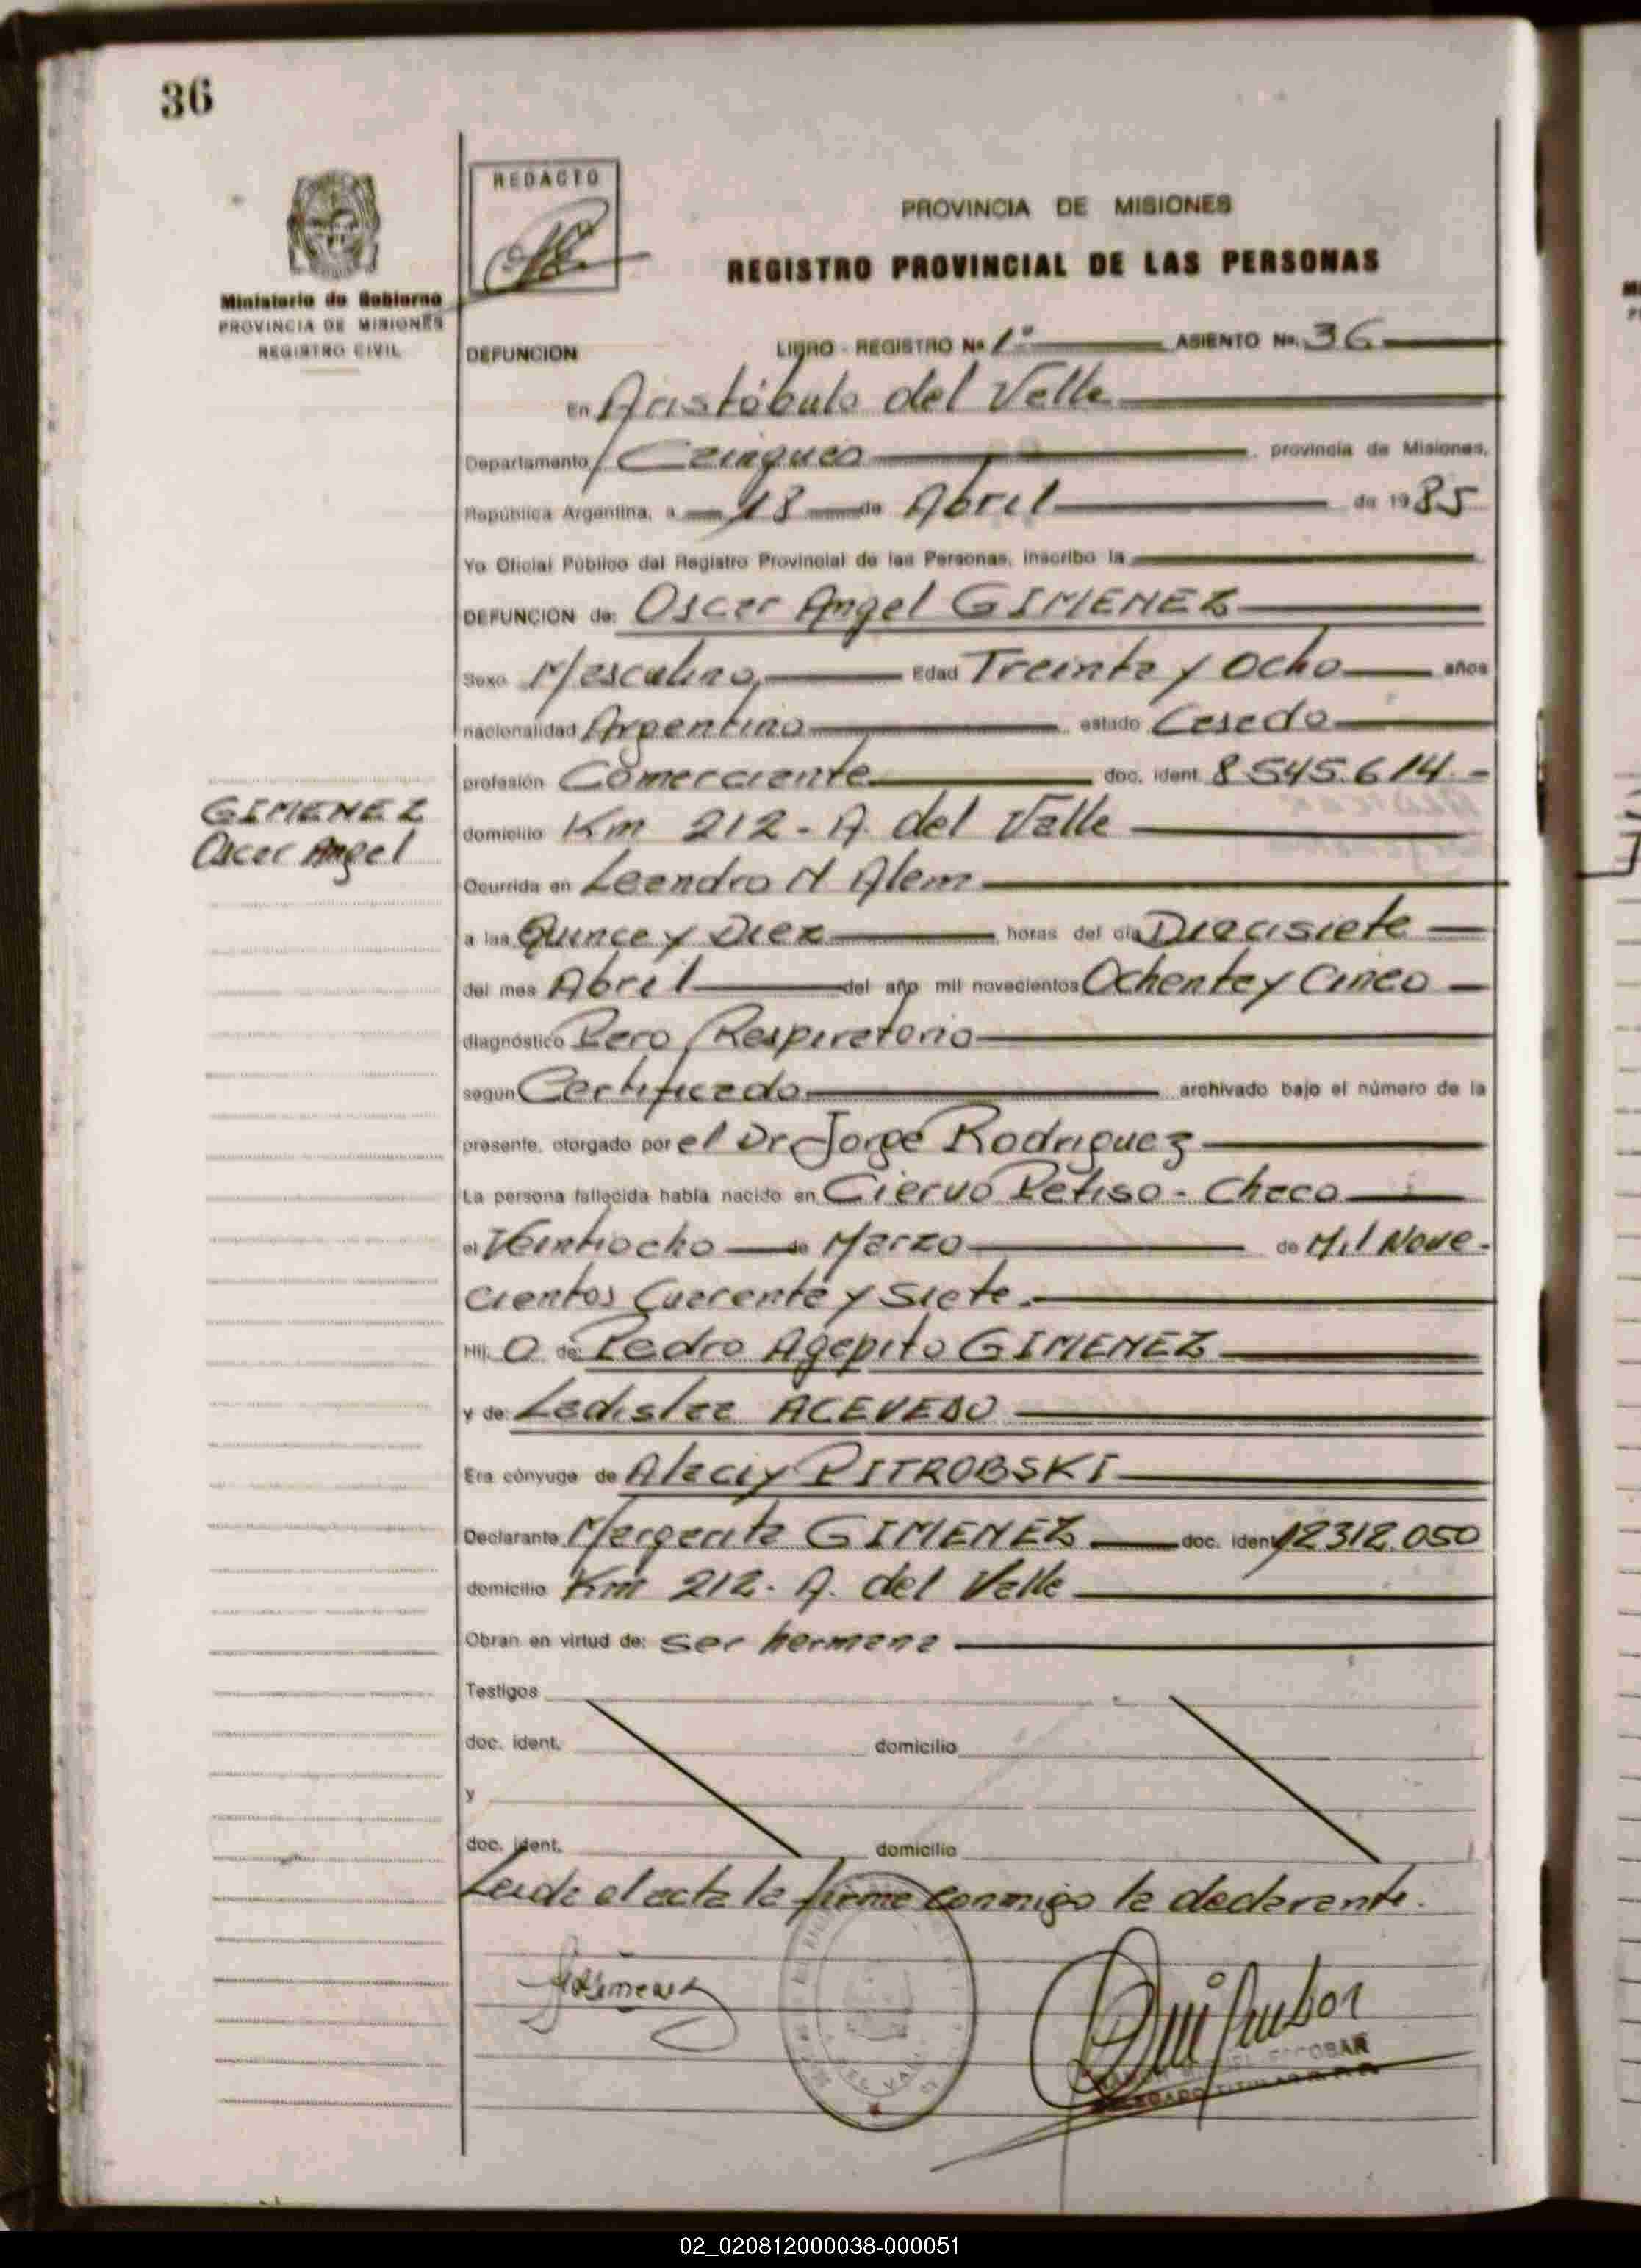 36
REDACTO
PROVINCIA DE MISIONES
REGISTRO PROVINCIAL DE LAS PERSONAS
Ministerio de Gobierno
PROVINCIA DE MISIONES
REGISTRO CIVIL
DEFUNCION LIBRO - REGISTRO Nº 1º ASIENTO Nº 36
En Aristóbulo del Valle
Departamento Cainguas provincia de Misiones,
República Argentina, a 18 de Abril de 1985
Yo Oficial Público del Registro Provincial de las Personas, inscribo la
DEFUNCION de: Oscar Angel GIMENEZ
Sexo Masculino, Edad Treinta y Ocho años
nacionalidad Argentina estado Casado
profesión Comerciante doc. ident. 8545.614.-
GIMENEZ
Oscar Angel
domicilio Km 212 - A. del Valle
Ocurrida en Leandro N Alem
a las Quince y Diez horas del día Diecisiete
del mes Abril del año mil novecientos Ochenta y Cinco
diagnóstico Paro Respiratorio
según Certificado archivado bajo el número de la
presente, otorgado por el Dr Jorge Rodriguez
La persona fallecida había nacido en Ciervo Petiso - Chaco
el Veintiocho de Marzo de Mil Nove-
cientos Cuarenta y Siete.
Hij o de: Pedro Agapito GIMENEZ
y de: Ladislaa ACEVEDO
Era cónyuge de Alaciy PITROBSKI
Declarante Margarita GIMENEZ doc. ident. 12312.050
domicilio Km 212. A. del Valle
Obran en virtud de: ser hermana
Testigos
doc. ident. domicilio
y
doc. ident. domicilio
Leida el acta la firma conmigo la declarante.
ESCOBAR
02_020812000038-000051